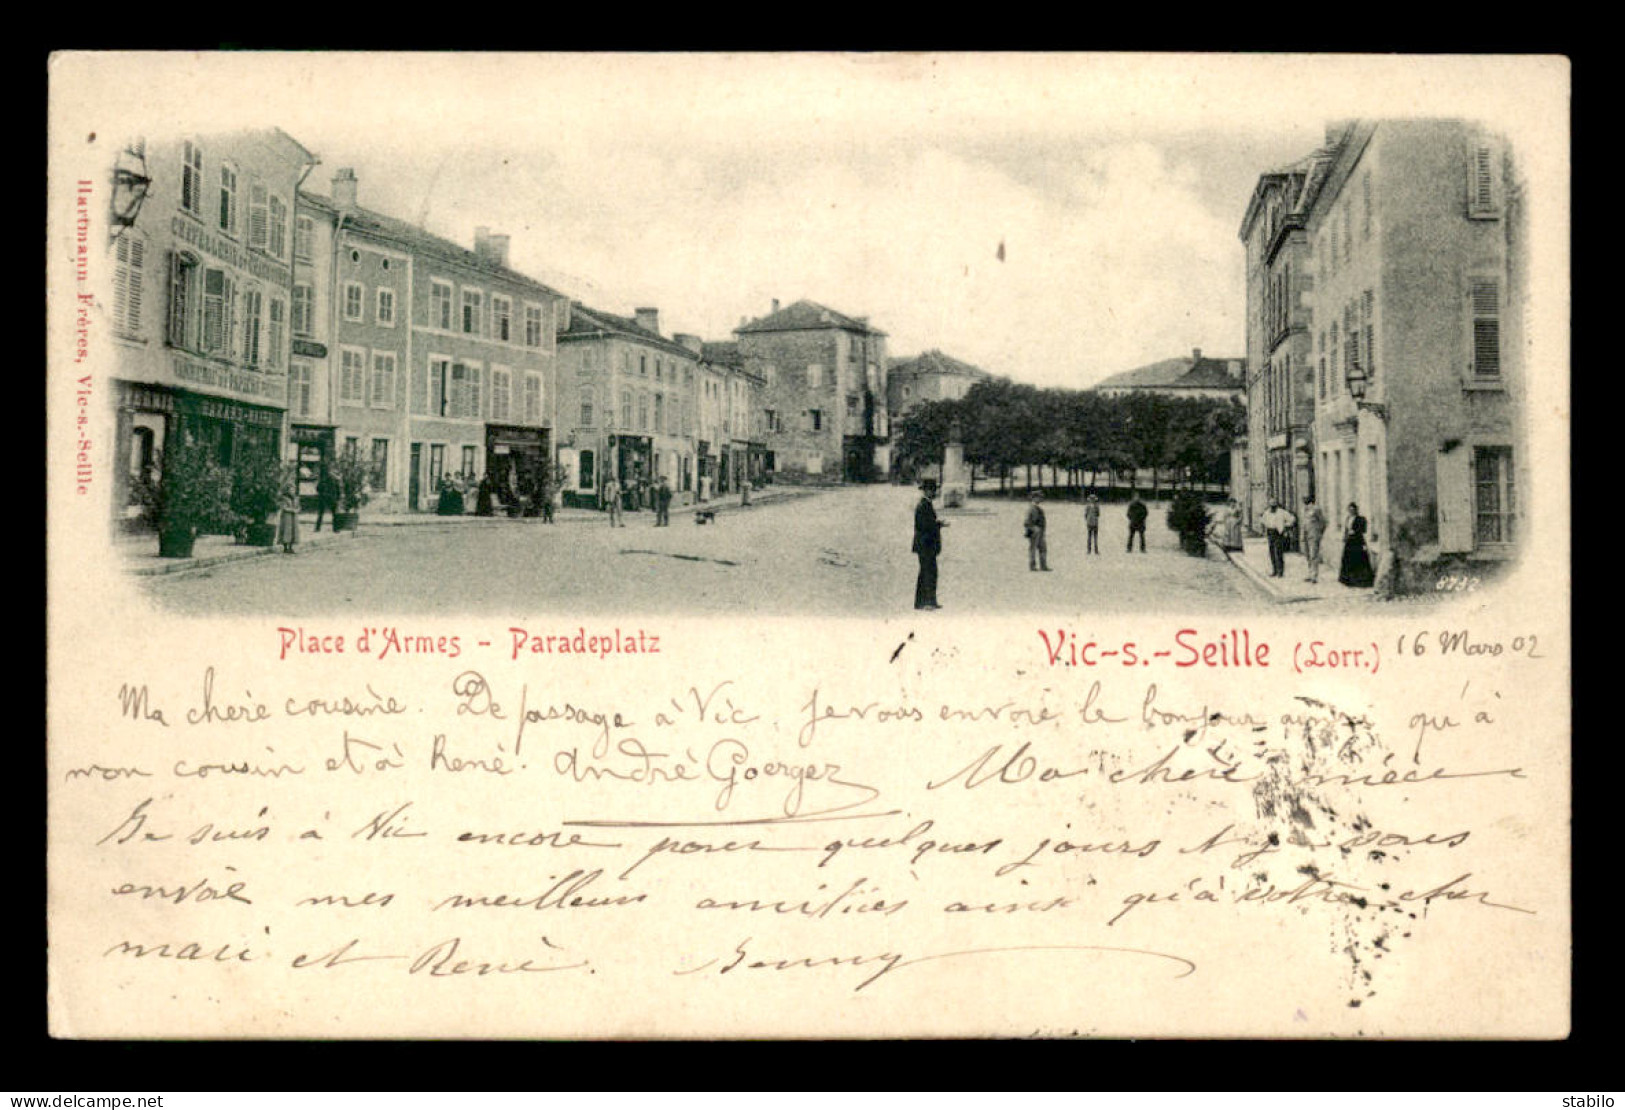 Hartmann Frères, Vic-s.-Seille
BAZAR
8732
Place d'Armes - Paradeplatz
Vic-s.-Seille (Lorr.) 16 Mars 02
Ma chère cousine. De passage à Vic. Je vous envoie le bonjour ainsi qu'à
mon cousin et à René. André Goerger
Ma chère nièce
Je suis à Vic encore pour quelques jours et je vous
envoie mes meilleurs amitiés ainsi qu'à votre cher
mari et René.
delcampe.net
stabilo